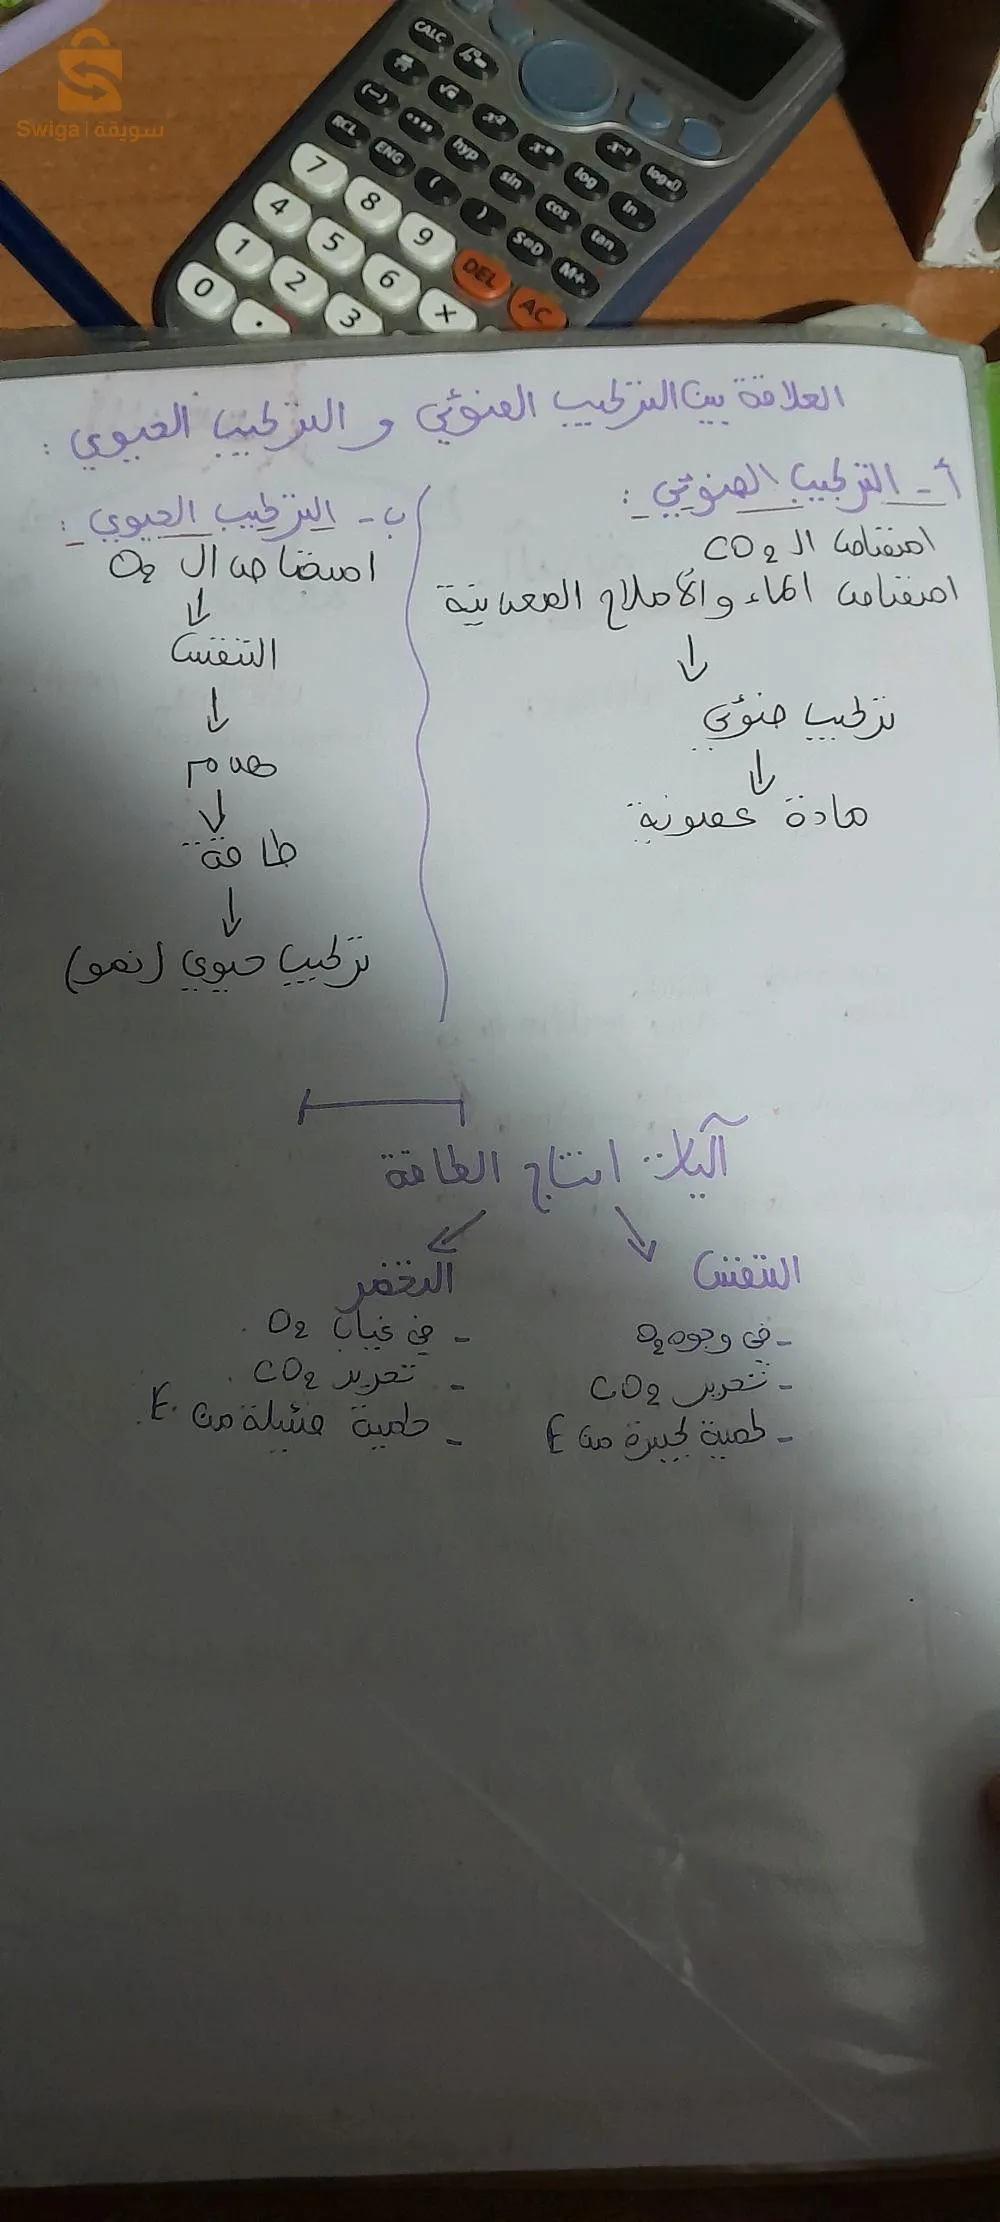 Swiga | سويقة
CALC
x²
x⁻¹
log
ln
(-)
hyp
sin
cos
tan
RCL
ENG
(
)
S⇔D
M+
7
8
9
DEL
AC
4
5
6
×
1
2
3
0
.
العلاقة بين التركيب الضوئي و التركيب الحيوي :
أ - التركيب الضوئي :
امتصاص الـ CO2
امتصاص الماء و الأملاح المعدنية
↓
تركيب ضوئي
↓
مادة عضوية
ب - التركيب الحيوي :
امتصاص الـ O2
↓
التنفس
↓
هدم
↓
طاقة
↓
تركيب حيوي (نمو)
آليات انتاج الطاقة
التنفس
- في وجود O2
- تحرير CO2
- كمية كبيرة من E
التخمر
- في غياب O2 .
- تحرير CO2 .
- كمية ضئيلة من E .